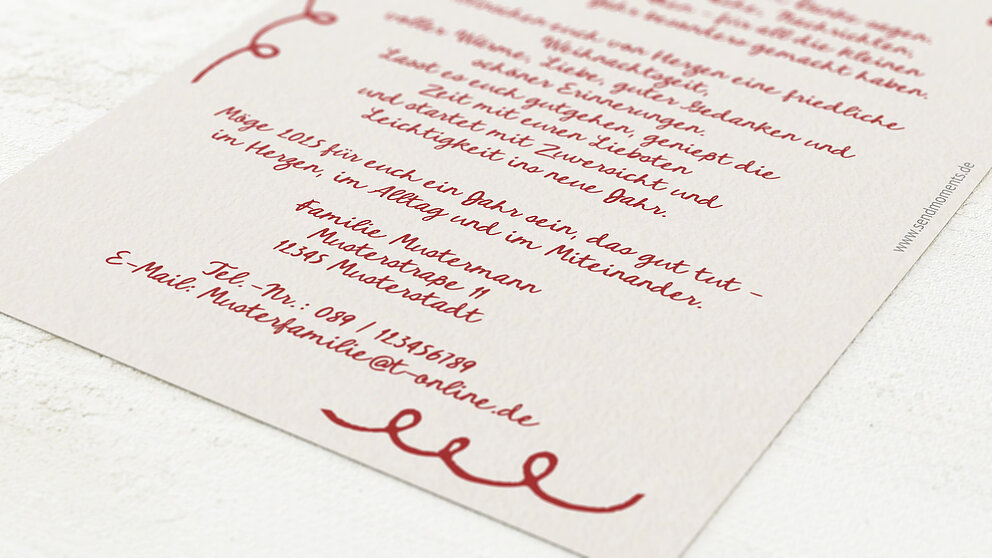 sagen.
Nachrichten,
für all die kleinen
besonders gemacht haben.
euch von Herzen eine friedliche
Weihnachtszeit,
voller Wärme, Liebe, guter Gedanken und
schöner Erinnerungen.
Lasst es euch gutgehen, genießt die
Zeit mit euren Liebsten
und startet mit Zuversicht und
Leichtigkeit ins neue Jahr.
Möge 2025 für euch ein Jahr sein, das gut tut –
im Herzen, im Alltag und im Miteinander.
Familie Mustermann
Musterstraße 11
12345 Musterstadt
Tel.-Nr.: 089 / 123456789
E-Mail: Musterfamilie@t-online.de
www.sendmoments.de